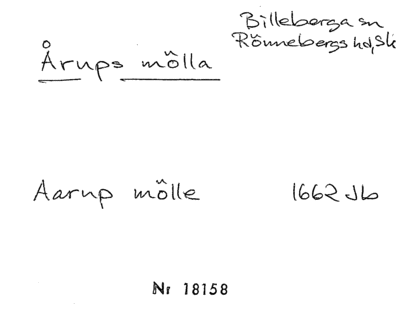 Billeberga sn
Rönnebergs hd, Sk
Årups mölla
Aarup mölle 1662 Jb
Nr 18158